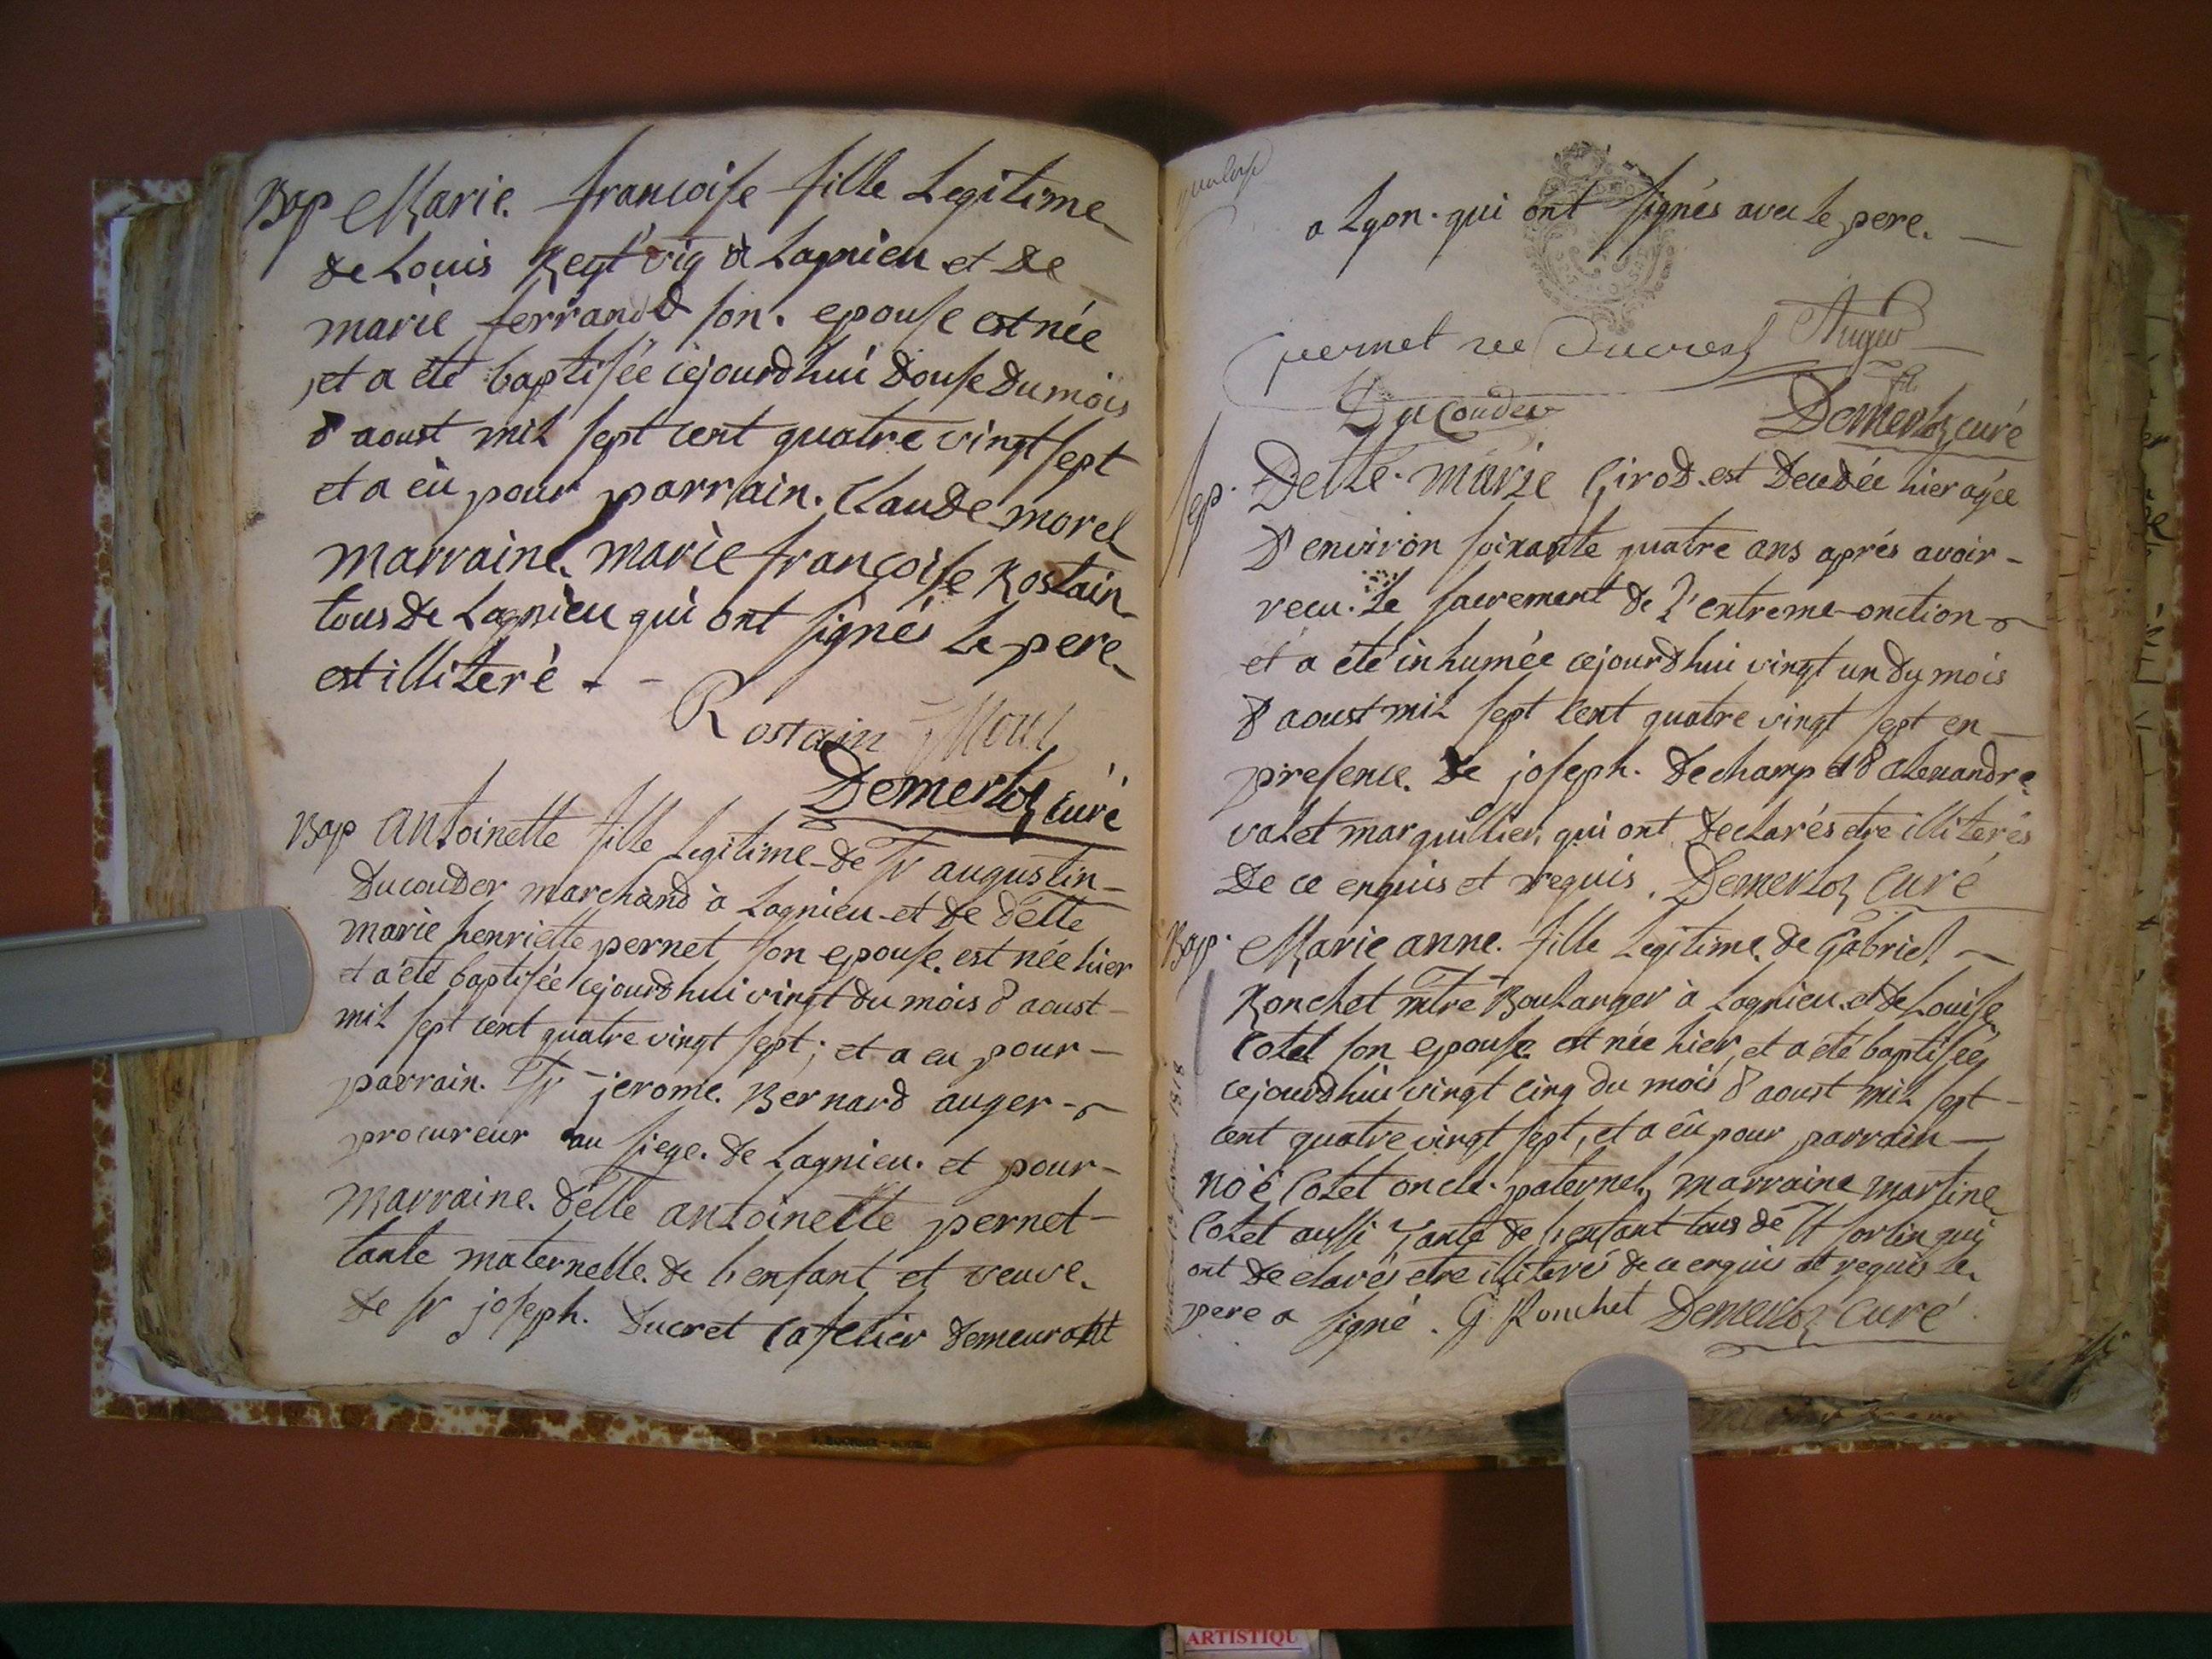 Bap Marie. francoise fille Legitime
de Louis Reyt vig à Lagnieu et de
marie ferrand son. epouse est née
et a été baptisée cejourdhui douse du mois
d aoust mil sept cent quatre vingt sept
et a eü pour parrain. Claude morel
marraine. marie françoise Rostain
tous de Lagnieu qui ont signés le pere
est illiteré.
Rostain Morel
Demerloz curé
Bap Antoinette fille Legitime de Sr augustin
Ducouder marchand à Lagnieu et de delle
marie henriette pernet son epouse. est née hier
et a été baptisée cejourdhui vingt du mois d aoust
mil sept cent quatre vingt sept; et a eu pour
parrain. Sr jerome. Bernard auger
procureur au siege. de Lagnieu. et pour
marraine. delle antoinette pernet
tante maternelle. de l'enfant et veuve.
de Sr joseph. Ducret cafetier demeurant
a Lyon. qui ont signés avec le pere.
pernet ve Ducret Auger
Ducouder fils
Demerloz curé
sep. Delle. marie Girod. est decedée hier agée
d'environ soixante quatre ans aprés avoir
recu. le sacrement de l'extreme-onction
et a été inhumée cejourdhui vingt un du mois
d aoust mil sept cent quatre vingt sept en
presence. de joseph. dechamp et d alexandre.
valet marguillier, qui ont declarés etre illiterés
de ce enquis et requis. Demerloz curé
Bap. Marie anne. fille Legitime. de Gabriel
Ronchet mtre Boulanger à Lagnieu. et de Louise
Cotet son epouse. est née hier, et a été baptisée
cejourdhui vingt cinq du mois d aoust mil sept
cent quatre vingt sept, et a eü pour parrain
noé Cotet oncle. paternel, marraine martine
Cotet aussi tante de l'enfant tous de St sorlin qui
ont declarés etre illiterés de ce enquis et requis le
pere a signé. G Ronchet Demerloz curé
1818
ARTISTIQU